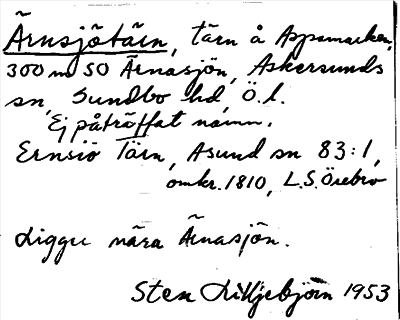 Ärnsjötärn, tärn å Aspamarken,
300 m SO Ärnasjön, Askersunds
sn, Sundbo hd, Ö.l.
Ej påträffat namn.
Ernsiö Tärn, Asund sn 83:1,
omkr. 1810, L.S. Örebro
Ligger nära Ärnasjön.
Sten Liljebjörn 1953